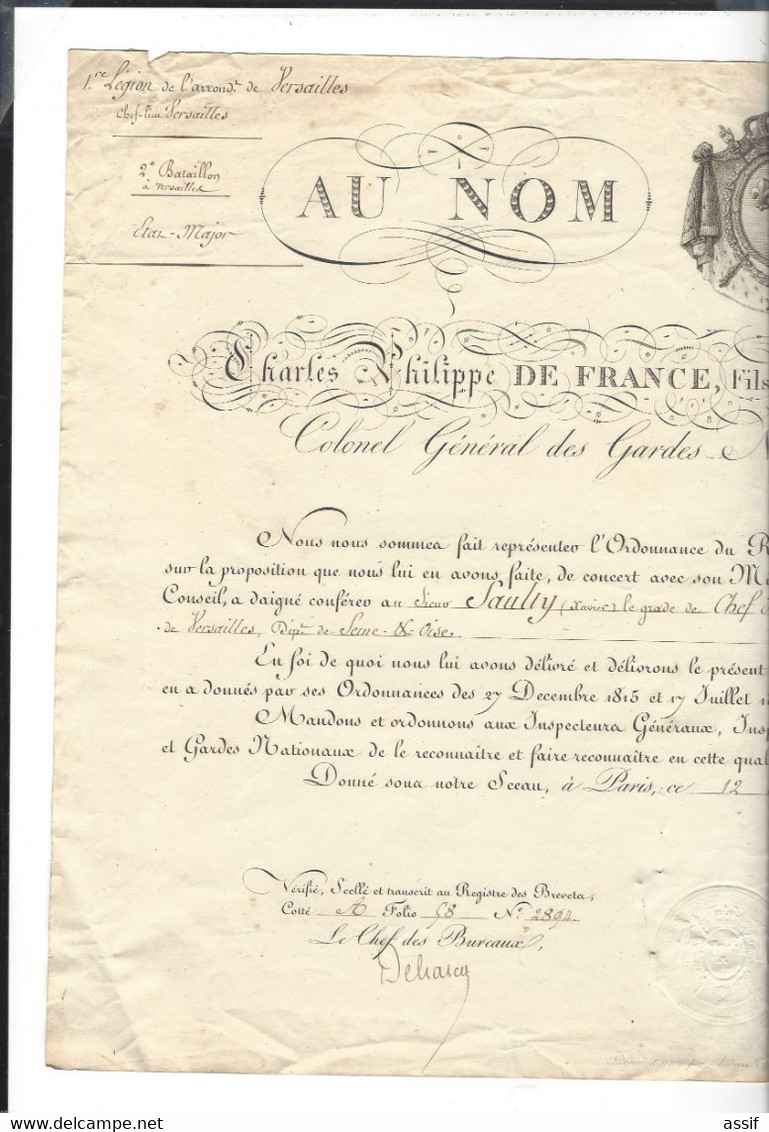 1.re Légion de l'arrond.t de Versailles
Chef-lieu Versailles
2e Bataillon
à Versailles
Etat-Major
AU NOM
Charles Philippe DE FRANCE, Fils
Colonel Général des Gardes N
Nous nous sommes fait représenter l'Ordonnance du R
sur la proposition que nous lui en avons faite, de concert avec son M
Conseil, a daigné conférer au Sieur Saulty (Xavier) le grade de Chef
de Versailles, Dépt. de Seine-&-Oise.
En foi de quoi nous lui avons délivré et délivrons le présent
en a donnés par ses Ordonnances des 27 Decembre 1815 et 17 Juillet 1
Mandons et ordonnons aux Inspecteurs Généraux, Insp
et Gardes Nationaux de le reconnaître et faire reconnaître en cette qual
Donné sous notre Sceau, à Paris, ce 12
Vérifié, Scellé et transcrit au Registre des Brevets,
Cotté A Folio 58 N.o 2894.
Le Chef des Bureaux,
assif